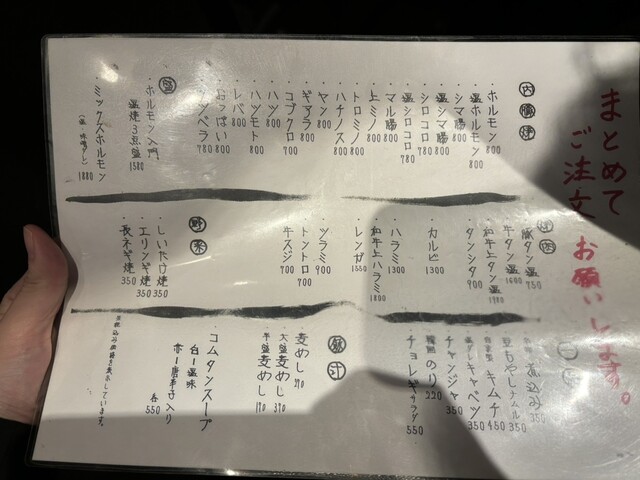 まとめて
ご注文
お願いします。
内臓焼
・ホルモン 800
・塩ホルモン 800
・シマ腸 800
・塩シマ腸 800
・シロコロ 780
・塩シロコロ 780
・マル腸 800
・上ミノ 800
・トロミノ 800
・ハチノス 800
・ヤン 800
・ギアラ 800
・コブクロ 700
・ハツ 800
・ハツモト 800
・レバ 800
・おっぱい 800
・タツベラ 780
・ホルモン入門
塩焼3点盛 1580
・ミックスホルモン 1880
豚タン塩 950
牛タン塩 1600
和牛上タン塩 1980
・タンシタ 900
・カルビ 1300
・ハラミ 1300
・和牛上ハラミ 1800
・レンガ 1550
・ツラミ 900
・トントロ 700
・牛スジ 700
野菜
・しいたけ焼 350
・エリンギ焼 350
・長ネギ焼 350
煮込み 350
豆もやしナムル 350
キムチ 450
塩ダレキャベツ 350
チャンジャ 350
韓国のり 220
チョレギサラダ 550
飯 汁
麦めし 290
大盛麦めし 390
半盛麦めし 190
コムタンスープ
白ー塩味
赤ー唐辛子入り
各550
※税込み価格を表示しています。